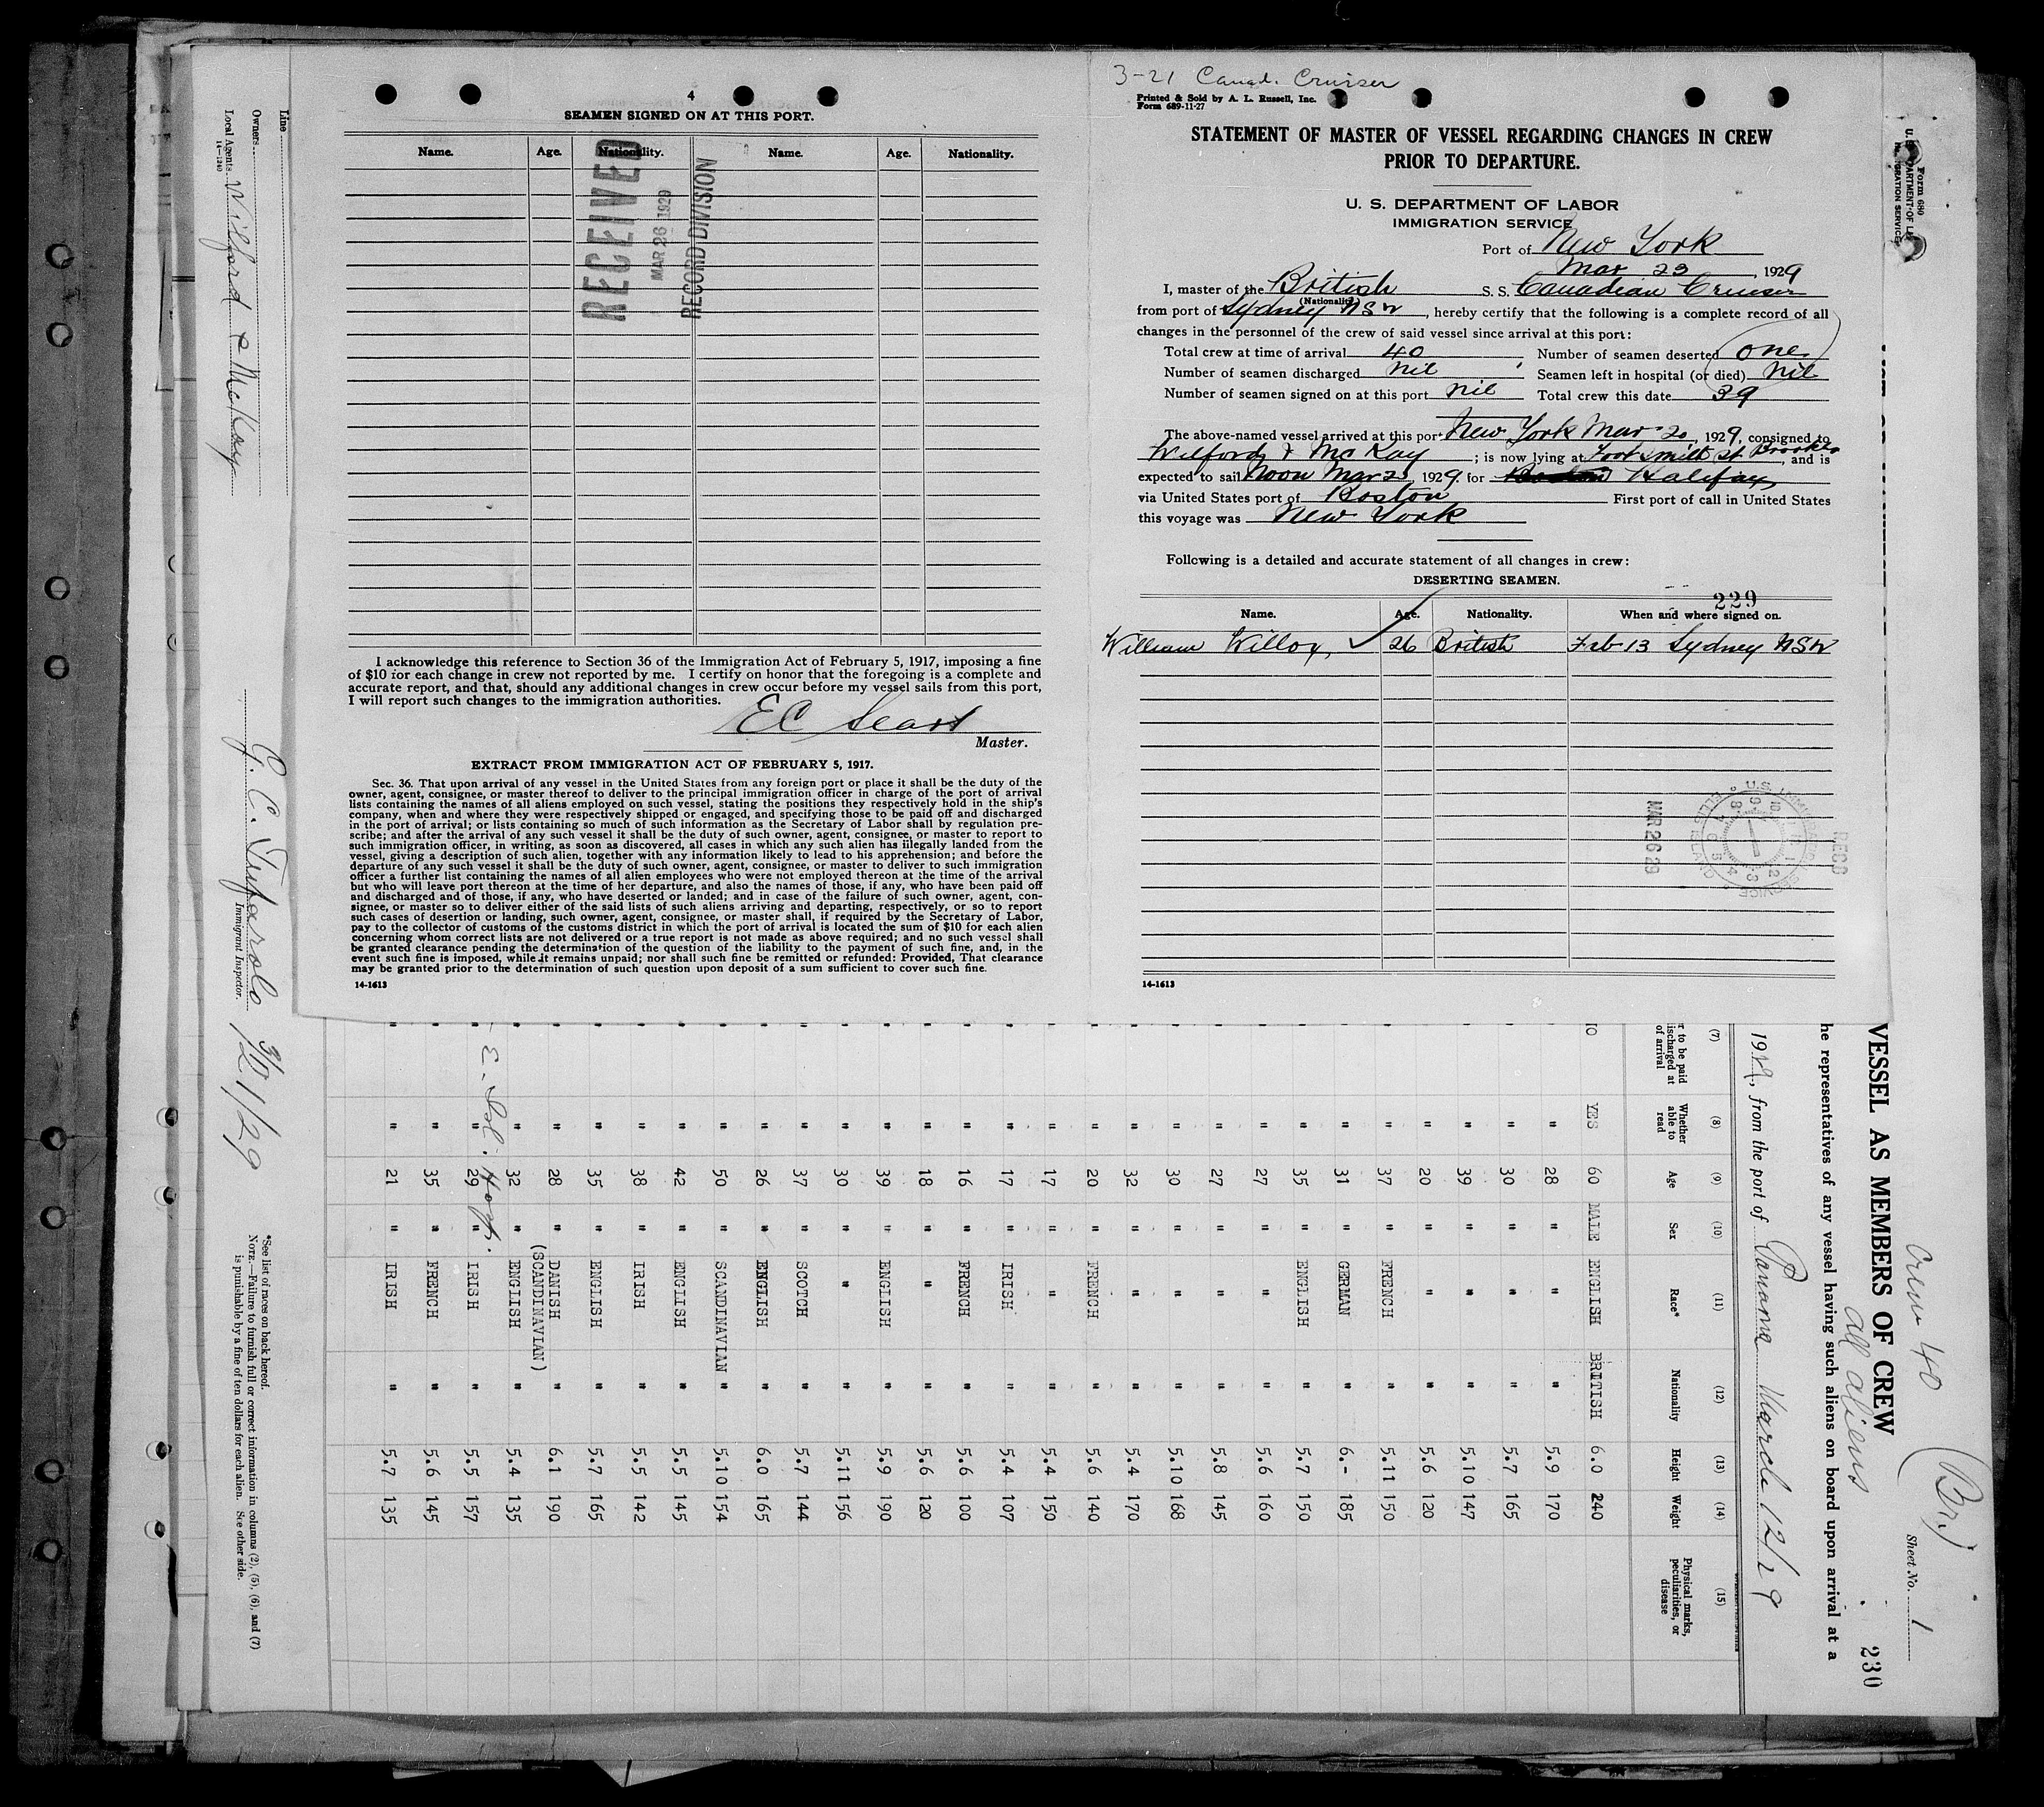 4
SEAMEN SIGNED ON AT THIS PORT.
Name. Age. Nationality. Name. Age. Nationality.
RECEIVED
MAR 26 1929
RECORD DIVISION
I acknowledge this reference to Section 36 of the Immigration Act of February 5, 1917, imposing a fine
of $10 for each change in crew not reported by me. I certify on honor that the foregoing is a complete and
accurate report, and that, should any additional changes in crew occur before my vessel sails from this port,
I will report such changes to the immigration authorities.
E C
Master.
EXTRACT FROM IMMIGRATION ACT OF FEBRUARY 5, 1917.
Sec. 36. That upon arrival of any vessel in the United States from any foreign port or place it shall be the duty of the
owner, agent, consignee, or master thereof to deliver to the principal immigration officer in charge of the port of arrival
lists containing the names of all aliens employed on such vessel, stating the positions they respectively hold in the ship's
company, when and where they were respectively shipped or engaged, and specifying those to be paid off and discharged
in the port of arrival; or lists containing so much of such information as the Secretary of Labor shall by regulation pre-
scribe; and after the arrival of any such vessel it shall be the duty of such owner, agent, consignee, or master to report to
such immigration officer, in writing, as soon as discovered, all cases in which any such alien has illegally landed from the
vessel, giving a description of such alien, together with any information likely to lead to his apprehension; and before the
departure of any such vessel it shall be the duty of such owner, agent, consignee, or master to deliver to such immigration
officer a further list containing the names of all alien employees who were not employed thereon at the time of the arrival
but who will leave port thereon at the time of her departure, and also the names of those, if any, who have been paid off
and discharged and of those, if any, who have deserted or landed; and in case of the failure of such owner, agent, con-
signee, or master so to deliver either of the said lists of such aliens arriving and departing, respectively, or so to report
such cases of desertion or landing, such owner, agent, consignee, or master shall, if required by the Secretary of Labor,
pay to the collector of customs of the customs district in which the port of arrival is located the sum of $10 for each alien
concerning whom correct lists are not delivered or a true report is not made as above required; and no such vessel shall
be granted clearance pending the determination of the question of the liability to the payment of such fine, and, in the
event such fine is imposed, while it remains unpaid; nor shall such fine be remitted or refunded: Provided, That clearance
may be granted prior to the determination of such question upon deposit of a sum sufficient to cover such fine.
14-1613
3-21 Canad. Cruiser
Printed & Sold by A. L. Russell, Inc.
Form 689-11-27
STATEMENT OF MASTER OF VESSEL REGARDING CHANGES IN CREW
PRIOR TO DEPARTURE.
U. S. DEPARTMENT OF LABOR
IMMIGRATION SERVICE
Port of New York
Mar 23, 1929
I, master of the British S. S. Canadian Cruiser
(Nationality)
from port of Sydney NSW, hereby certify that the following is a complete record of all
changes in the personnel of the crew of said vessel since arrival at this port:
Total crew at time of arrival 40 Number of seamen deserted one
Number of seamen discharged nil Seamen left in hospital (or died) nil
Number of seamen signed on at this port nil Total crew this date 39
The above-named vessel arrived at this port New York Mar 20, 1929, consigned to
Wilford & McKay; is now lying at Foot Smith St Brookln, and is
expected to sail Noon Mar 2, 1929. for Halifax
via United States port of Boston First port of call in United States
this voyage was New York
Following is a detailed and accurate statement of all changes in crew:
DESERTING SEAMEN.
229
Name. Age. Nationality. When and where signed on.
William Willox, 26 British Feb 13 Sydney NSW
U.S. IMMIGRATION SERVICE
ELLIS ISLAND
MAR 26 29
RECD
14-1613
Form 680
U. S. DEPARTMENT OF LA
IMMIGRATION SERVICE
Crew 40 (Br.) Sheet No. 1
VESSEL AS MEMBERS OF CREW 230
all aliens
he representatives of any vessel having such aliens on board upon arrival at a
1929, from the port of Panama March 12/29
(7) (8) (9) (10) (11) (12) (13) (14) (15)
r to be paid discharged at of arrival Whether able to read Age Sex Race* Nationality Height Weight Physical marks, peculiarities, or disease
NO YES 60 MALE ENGLISH BRITISH 6.0 240
" 28 " " " 5.9 170
" 30 " " " 5.7 165
" 39 " " " 5.10 147
" 20 " " " 5.6 120
" 37 " FRENCH " 5.11 150
" 31 " GERMAN " 6.- 185
" 35 " ENGLISH " 5.7 150
" 27 " " " 5.6 160
" 27 " " " 5.8 145
" 30 " " " 5.10 168
" 32 " " " 5.4 170
" 20 " FRENCH " 5.6 140
" 17 " " " 5.4 150
" 17 " IRISH " 5.4 107
" 16 " FRENCH " 5.6 100
" 18 " " " 5.6 120
" 39 " ENGLISH " 5.9 190
" 30 " " " 5.11 156
" 37 " SCOTCH " 5.7 144
" 26 " ENGLISH " 6.0 165
" 50 " SCANDINAVIAN " 5.10 154
" 42 " ENGLISH " 5.5 145
" 38 " IRISH " 5.5 142
" 35 " ENGLISH " 5.7 165
" 28 " DANISH (SCANDINAVIAN) " 6.1 190
" 32 " ENGLISH " 5.4 135
E. Isl. Hosp.
" 29 " IRISH " 5.5 157
" 35 " FRENCH " 5.6 145
" 21 " IRISH " 5.7 135
Line
Owners
Local Agents Wilford & McKay
14-1240
G. C. Tufarolo 3/21/29
Immigrant Inspector.
*See list of races on back hereof.
NOTE.—Failure to furnish full or correct information in columns (2), (5), (6), and (7)
is punishable by a fine of ten dollars for each alien. See other side.